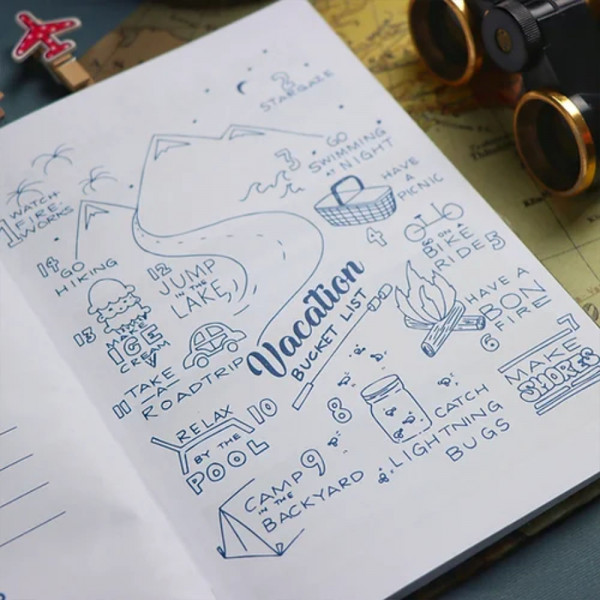 Vacation
BUCKET LIST
1 WATCH
FIRE-
WORKS
2
STARGAZE
3 GO
SWIMMING
AT NIGHT
HAVE
A
PICNIC
4
GO ON A
BIKE
RIDE 5
HAVE A
BON
FIRE
6
7
MAKE
SMORES
8
CATCH
LIGHTNING
BUGS
CAMP 9
IN THE
BACKYARD
RELAX 10
BY THE
POOL
11 TAKE
A
ROADTRIP
12
JUMP
IN THE
LAKE
13 MAKE
ICE
CREAM
14 GO
HIKING